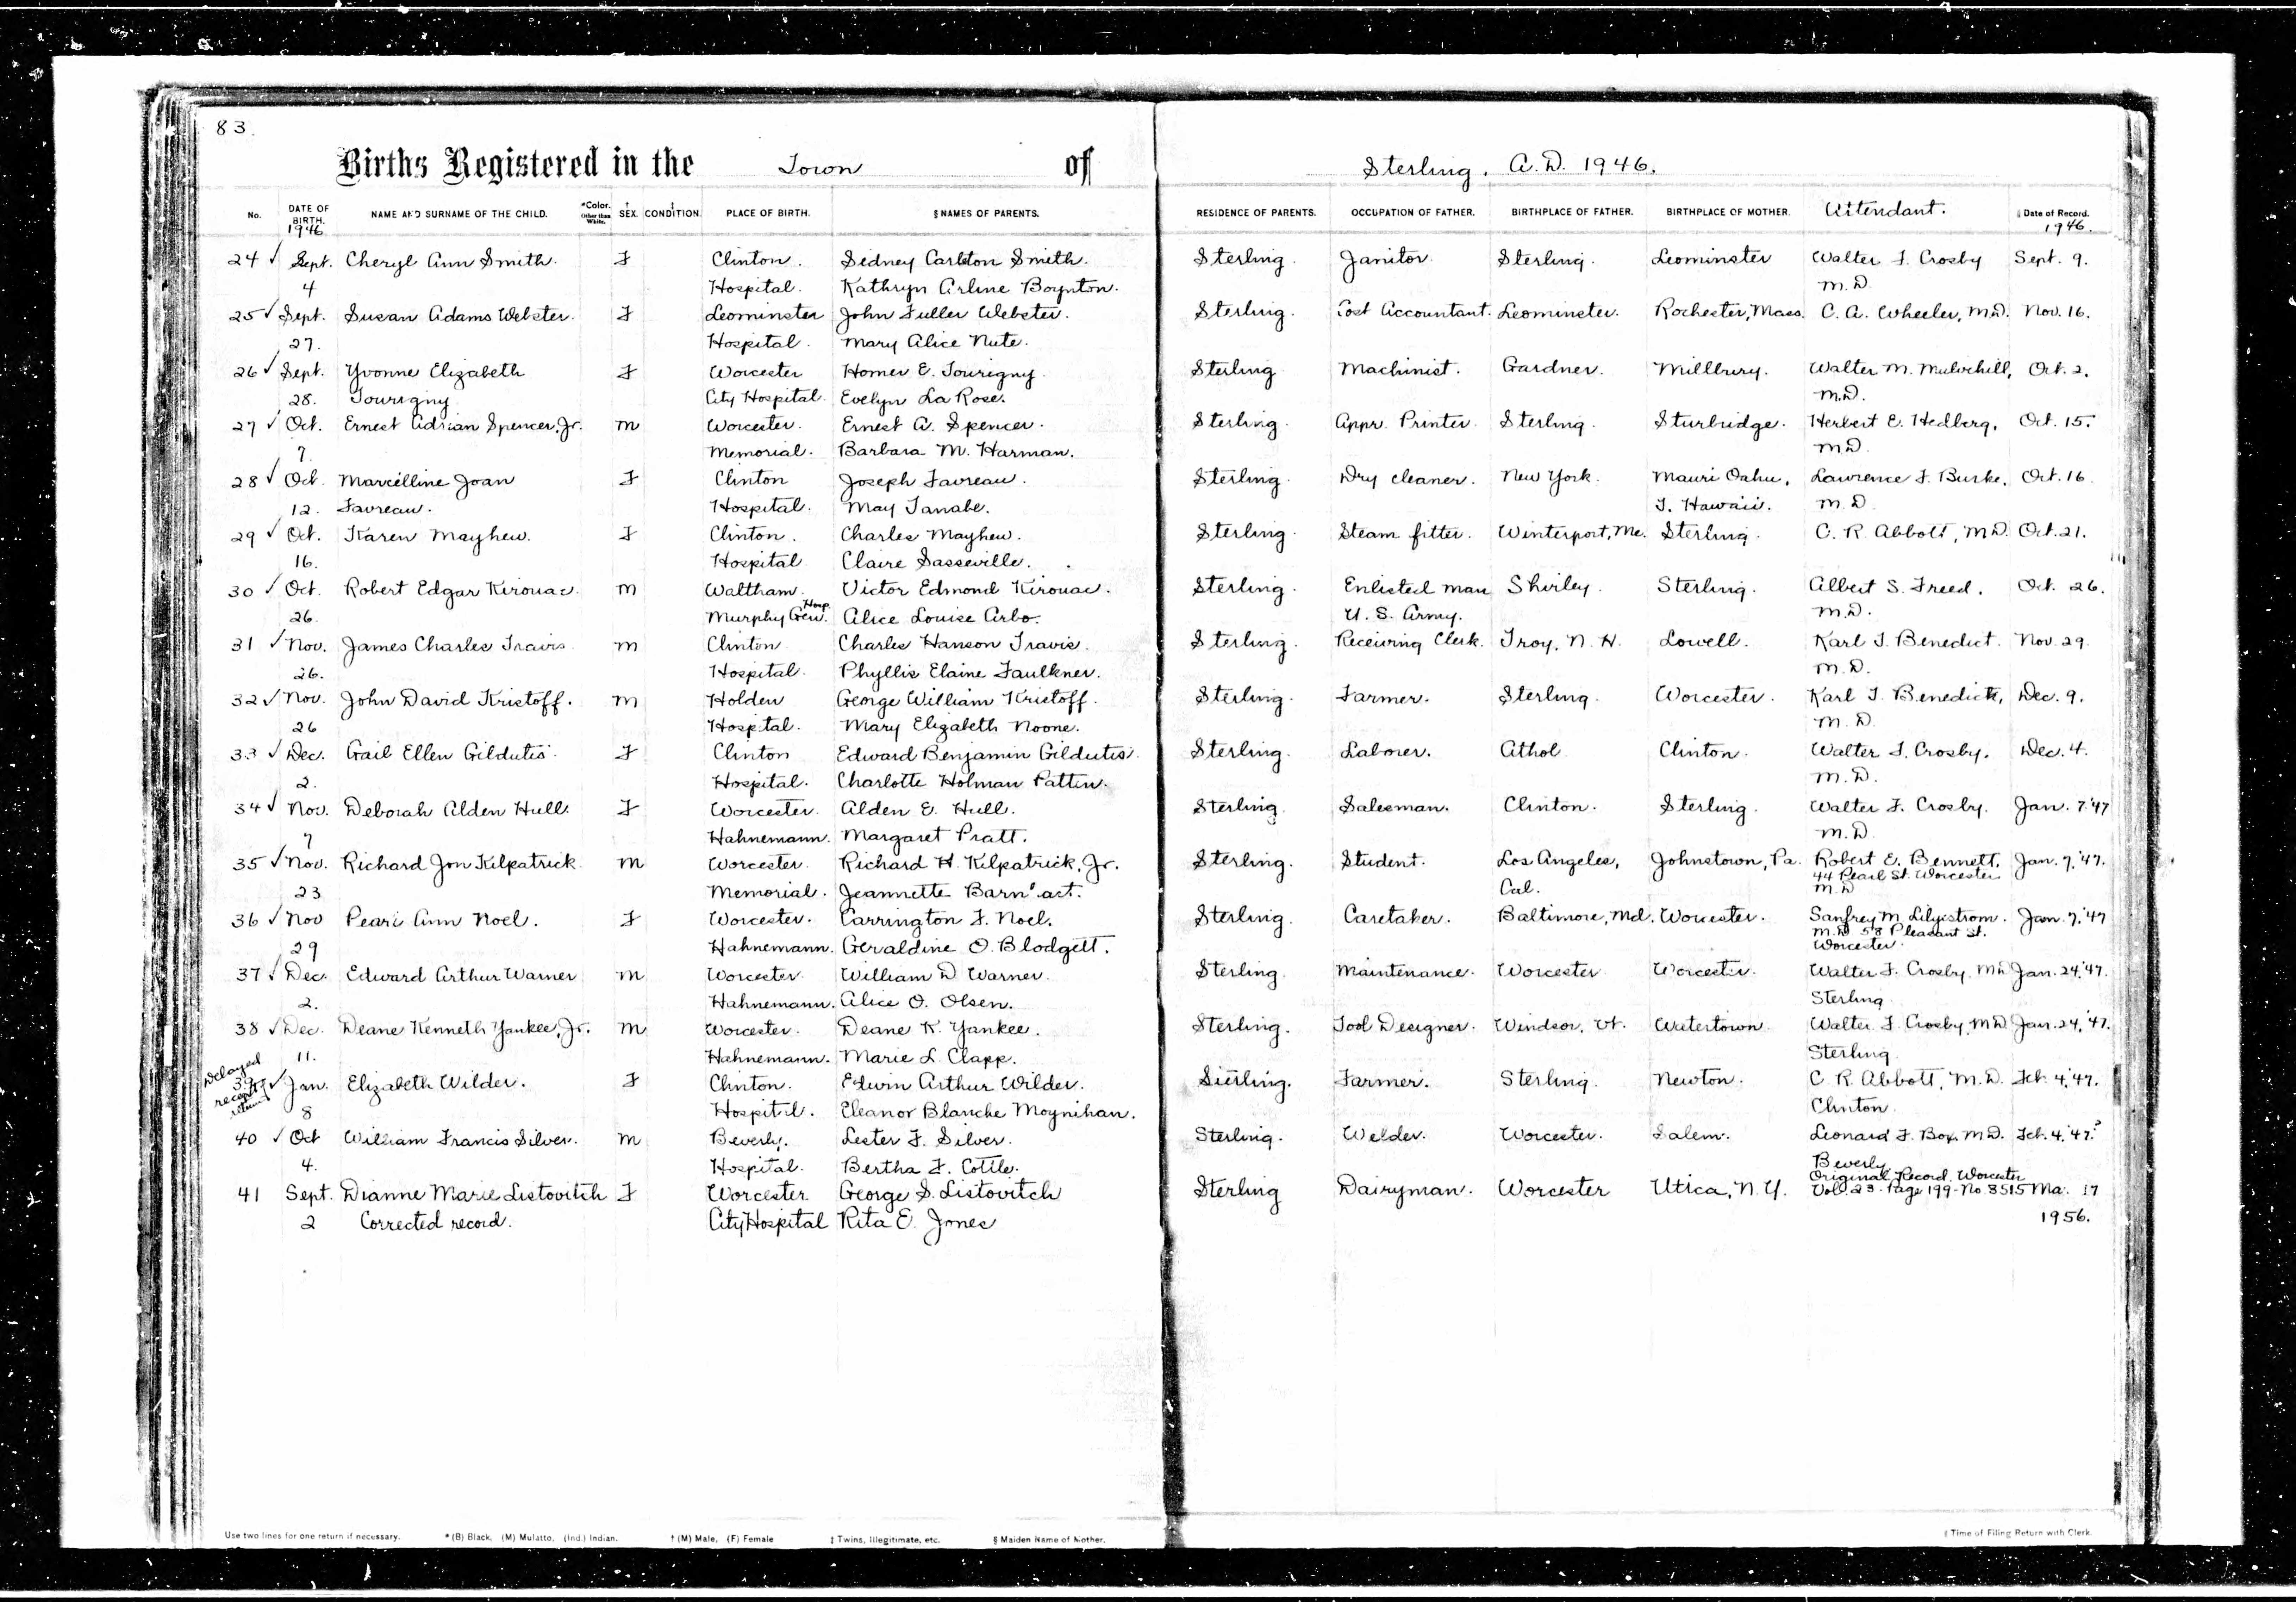 83.
Births Registered in the Town of Sterling. A.D. 1946.
No. DATE OF BIRTH. 1946 NAME AND SURNAME OF THE CHILD. *Color. Other than White. † SEX. ‡ CONDITION. PLACE OF BIRTH. § NAMES OF PARENTS. RESIDENCE OF PARENTS. OCCUPATION OF FATHER. BIRTHPLACE OF FATHER. BIRTHPLACE OF MOTHER. Attendant. ‖ Date of Record. 1946.
24 ✓ Sept. Cheryl Ann Smith. F Clinton. Sidney Carlton Smith. Sterling. Janitor. Sterling. Leominster Walter F. Crosby Sept. 9.
4 Hospital. Kathryn Arline Boynton. M.D.
25 ✓ Sept. Susan Adams Webster. F Leominster John Fuller Webster. Sterling. Cost Accountant. Leominster. Rochester, Mass. C. A. Wheeler, M.D. Nov. 16.
27. Hospital. Mary Alice Nute.
26 ✓ Sept. Yvonne Elizabeth F Worcester Homer E. Tourigny. Sterling Machinist. Gardner. Millbury. Walter M. Mulvihill, Oct. 2.
28. Tourigny City Hospital. Evelyn La Rose. M.D.
27 ✓ Oct. Ernest Adrian Spencer, Jr. M Worcester. Ernest A. Spencer. Sterling. Appr. Printer. Sterling. Sturbridge. Herbert E. Hedberg, Oct. 15.
7. Memorial. Barbara M. Harman. M.D.
28 ✓ Oct. Marcelline Joan F Clinton Joseph Favreau. Sterling. Dry cleaner. New York. Mauri Oahu, Lawrence F. Burke, Oct. 16.
12. Favreau. Hospital. May Tanabe. T. Hawaii. M.D.
29 ✓ Oct. Karen Mayhew. F Clinton. Charles Mayhew. Sterling. Steam fitter. Winterport, Me. Sterling. C. R. Abbott, M.D. Oct. 21.
16. Hospital Claire Sasseville.
30 ✓ Oct. Robert Edgar Kirouac. M Waltham. Victor Edmond Kirouac. Sterling. Enlisted man Shirley. Sterling. Albert S. Freed. Oct. 26.
26. Murphy Gen. Hosp. Alice Louise Arbo. U. S. Army. M.D.
31 ✓ Nov. James Charles Travis M Clinton Charles Hanson Travis. Sterling. Receiving Clerk. Troy, N. H. Lowell. Karl T. Benedict. Nov. 29.
26. Hospital. Phyllis Elaine Faulkner. M.D.
32 ✓ Nov. John David Kristoff. M Holden George William Kristoff. Sterling. Farmer. Sterling. Worcester. Karl T. Benedict, Dec. 9.
26 Hospital. Mary Elizabeth Noone. M.D.
33 ✓ Dec. Gail Ellen Gildutis. F Clinton Edward Benjamin Gildutis. Sterling. Laborer. Athol Clinton. Walter F. Crosby. Dec. 4.
2. Hospital. Charlotte Holman Patten. M.D.
34 ✓ Nov. Deborah Alden Hull. F Worcester. Alden E. Hull. Sterling. Salesman. Clinton. Sterling. Walter F. Crosby. Jan. 7.'47
7 Hahnemann. Margaret Pratt. M.D.
35 ✓ Nov. Richard Jon Kilpatrick M Worcester. Richard H. Kilpatrick, Jr. Sterling. Student. Los Angeles, Johnstown, Pa. Robert E. Bennett, Jan. 7,'47.
44 Pearl St. Worcester
23 Memorial. Jeannette Barnhart. Cal. M.D
36 ✓ Nov Pearl Ann Noel. F Worcester. Carrington F. Noel. Sterling. Caretaker. Baltimore, Md. Worcester. Sanfrey M. Lilyestrom. Jan. 7,'47
M.D 58 Pleasant St.
29 Hahnemann. Geraldine O. Blodgett. Worcester.
37 ✓ Dec. Edward Arthur Warner M Worcester William D Warner. Sterling. Maintenance. Worcester Worcester. Walter F. Crosby, M.D. Jan. 24,'47.
2. Hahnemann. Alice O. Olsen. Sterling
38 ✓ Dec. Deane Kenneth Yankee, Jr. M Worcester. Deane K. Yankee. Sterling. Tool Designer. Windsor, Vt. Watertown Walter F. Crosby, M.D. Jan. 24,'47.
11. Hahnemann. Marie L. Clapp. Sterling
Delayed
39 ✓ Jan. Elizabeth Wilder. F Clinton. Edwin Arthur Wilder. Sterling. Farmer. Sterling. Newton. C. R. Abbott, M.D. Feb. 4,'47.
8 Hospital. Eleanor Blanche Moynihan. Clinton
40 ✓ Oct William Francis Silver. M Beverly. Lester F. Silver. Sterling. Welder. Worcester. Salem. Leonard F. Box, M.D. Feb. 4,'47.
4. Hospital. Bertha F. Cottle. Beverly
Original Record, Worcester
41 Sept. Dianne Marie Listovitch F Worcester George S. Listovitch Sterling Dairyman. Worcester Utica, N.Y. Vol. 23-Page 199-No 8515 Mar. 17
2 Corrected record. City Hospital Rita E. Jones 1956.
Use two lines for one return if necessary. * (B) Black, (M) Mulatto, (Ind.) Indian. † (M) Male, (F) Female ‡ Twins, Illegitimate, etc. § Maiden Name of Mother. ‖ Time of Filing Return with Clerk.